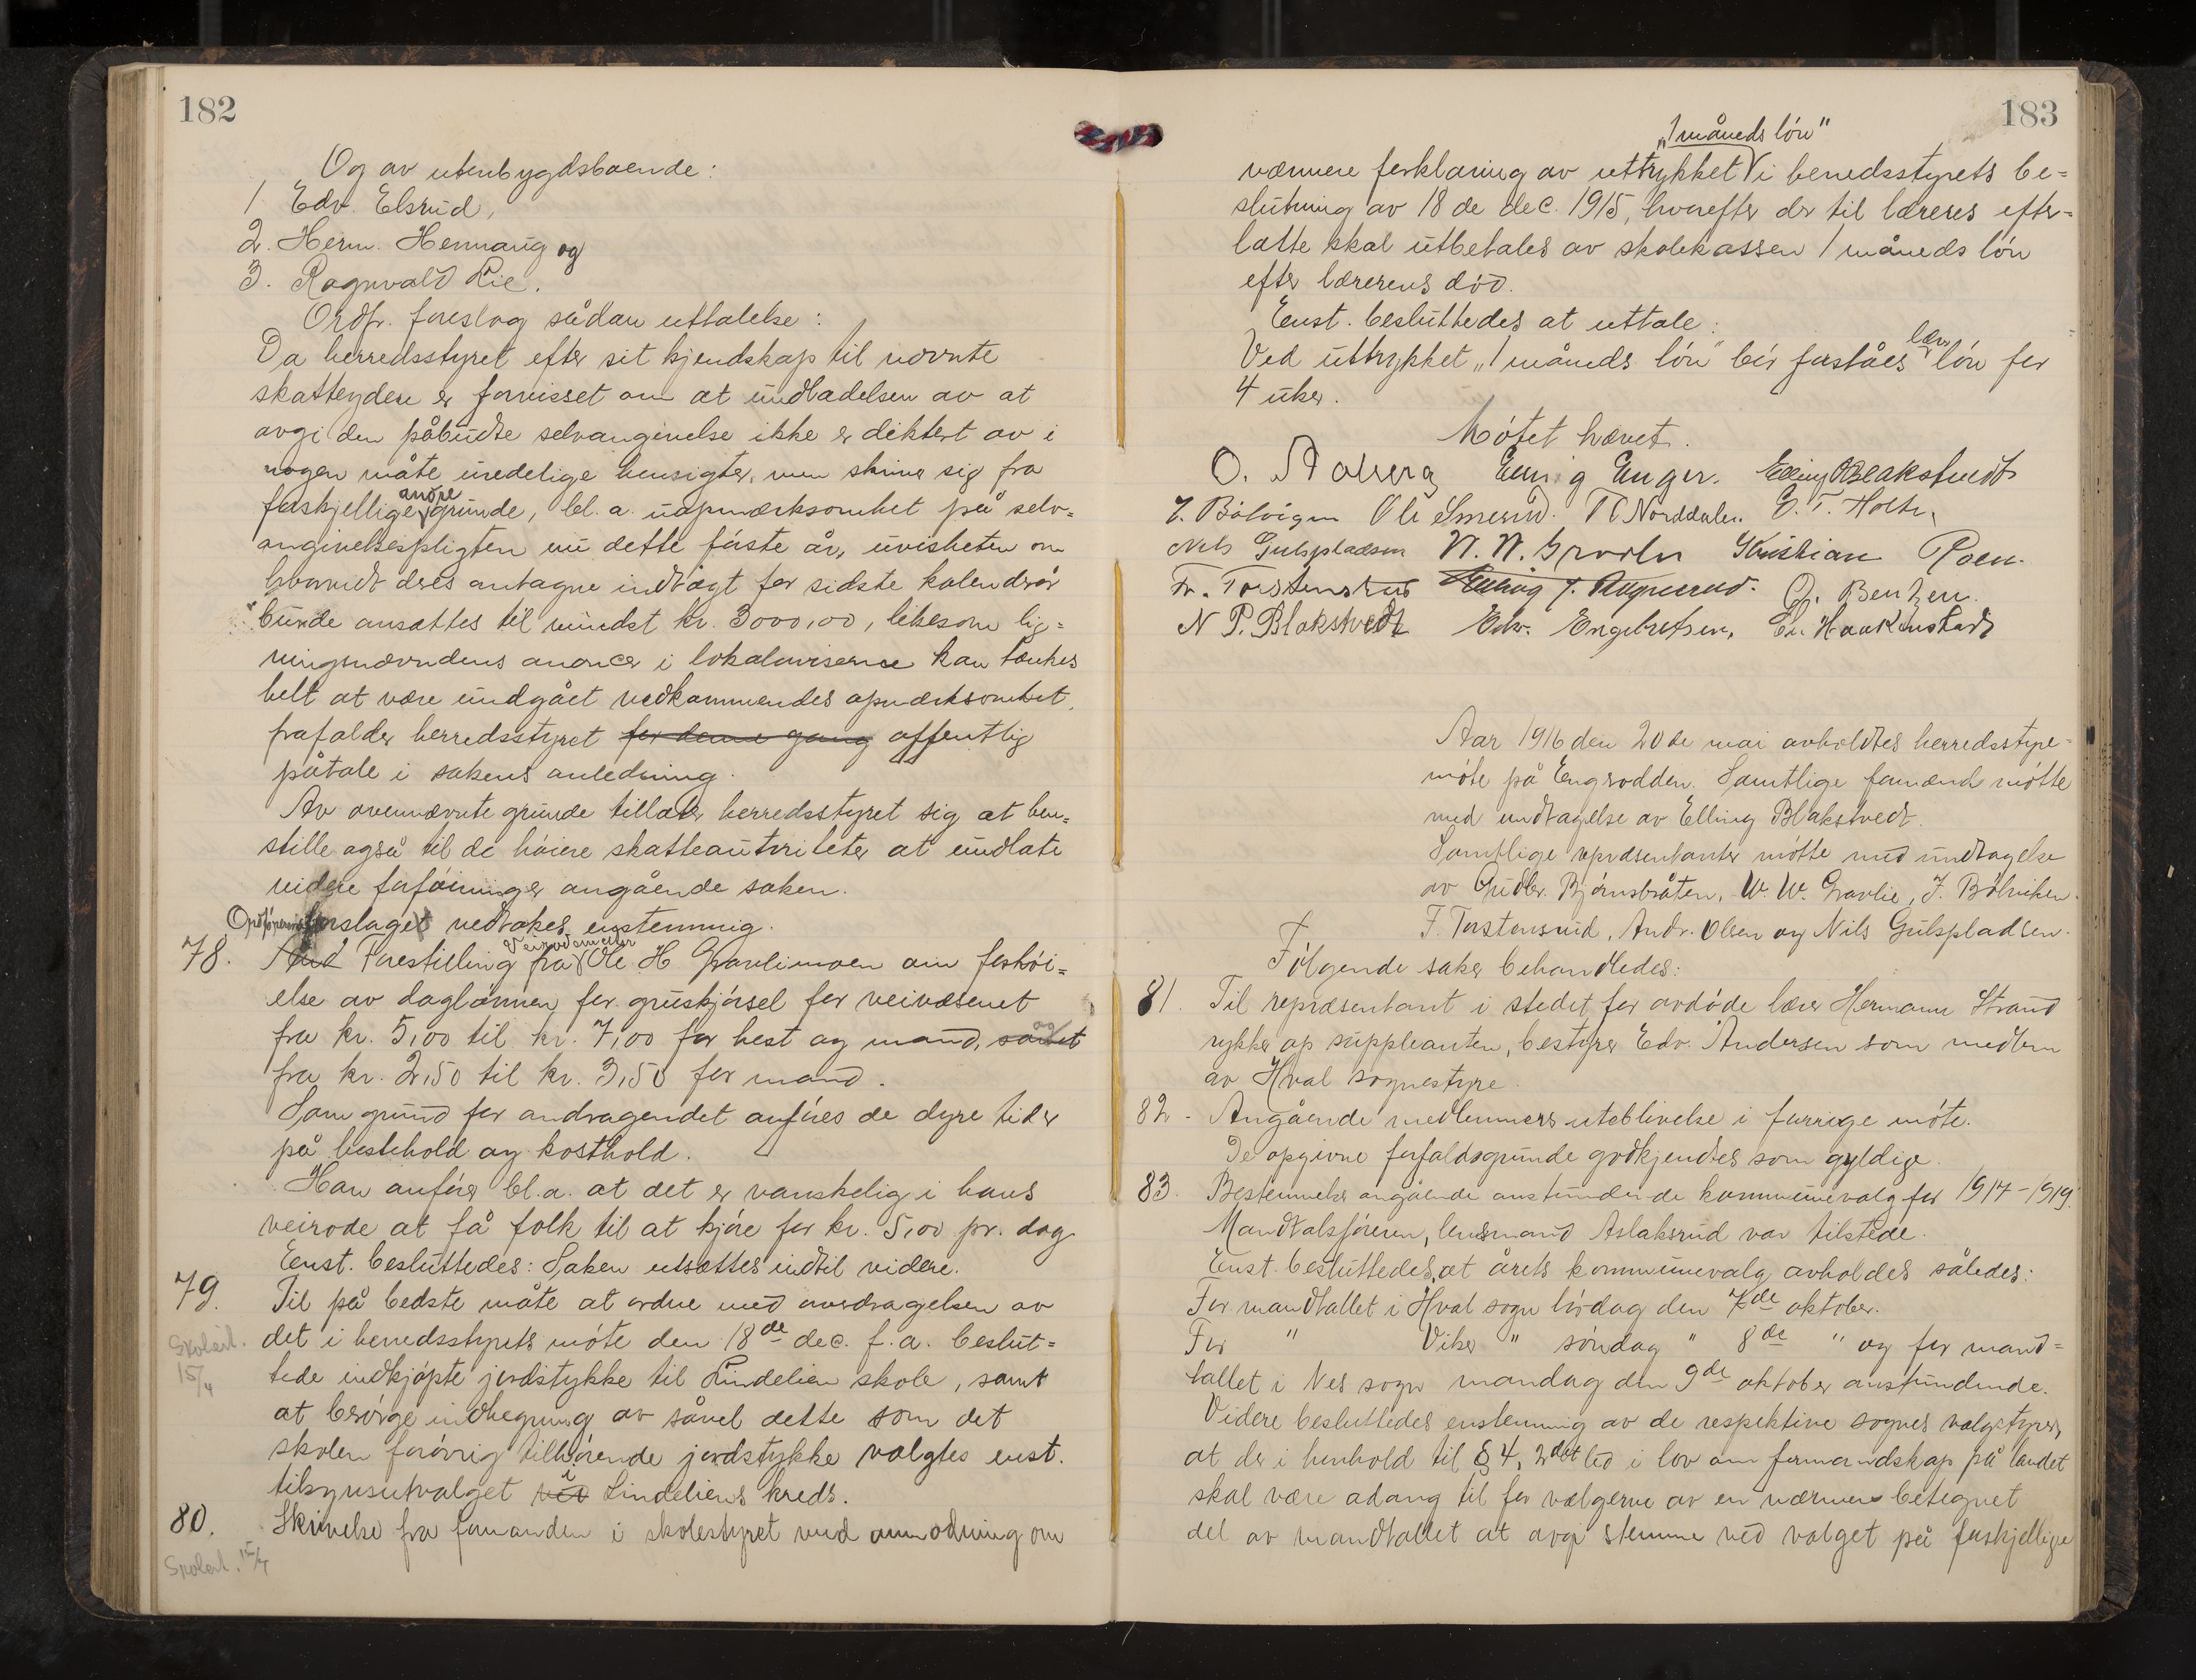 182
Og av utenbygdsboende:
1 Edv. Elsrud,
2. Herm. Hennaug og
3. Ragnvald Lie.
Ordf. foreslog sådan uttalelse:
Da herredsstyret efter sit kjendskap til nævnte
skatteydere er forvisset om at undladelsen av at
avgi den påbudte selvangivelse ikke er diktert av i
nogen måte uredelige hensigter, men skriver sig fra
forskjellige andre grunde, bl. a. uopmærksomhet på selv-
angivelsespligten nu dette første år, uvisheten om
hvorvidt deres antagne indtægt for sidste kalenderår
burde ansættes til mindst kr. 3000,00, likesom lig-
ningsnævndens anoncer i lokalaviserne kan tænkes
helt at være undgået vedkommendes opmerksomhet,
frafalder herredsstyret for denne gang offentlig
påtale i sakens anledning.
Av ovennævnte grunde tillater herredsstyret sig at hen-
stille også til de høiere skatteautoriteter at undlate
videre forføininger angående saken.
Ordførerens forslaget vedtokes enstemmig.
78. Forestilling fra Veirodemester Ole H Gravlimoen om forhøi-
else av daglønnen for gruskjørsel for veivæsenet
fra kr. 5,00 til kr. 7,00 for hest og mand, samt og
fra kr. 2,50 til kr. 3,50 for mand.
Som grund for andragendet anføres de dyre tider
på hestehold og kosthold.
Han anfører bl.a. at det er vanskelig i hans
veirode at få folk til at kjøre for kr. 5,00 pr. dag
Enst. besluttedes: Saken utsættes indtil videre.
79. Til på bedste måte at ordne med overdragelsen av
det i herredsstyrets møte den 18de dec. f. a. beslut-
Skoleut.
15/4
tede indkjøpte jordstykke til Lindelien skole, samt
at besørge indhegning av såvel dette som det
skolen forøvrig tilhørende jordstykke valgtes enst.
tilsynsutvalget ved i Lindeliens kreds.
80. Skrivelse fra formanden i skolestyret med anmodning om
Skolest. 15/4
183
"1 måneds løn"
nærmere forklaring av uttrykket i herredsstyrets be-
slutning av 18 de dec. 1915, hvorefter der til læreres efter-
latte skal utbetales av skolekassen 1 måneds løn
efter lærerens død.
Enst. besluttedes at uttale:
Ved uttrykket "1 måneds løn" bør forståes lærerløn for
4 uker.
Møtet hævet.
O. Aaberg Elling Enger. Elling Blakstvedt
J. Bølvigen Ole Smerud. T C Norddalen. G. T. Holte.
Nils Gulspladsen W. W. Gravlie Kristian Roen.
Fr. Torstensrud O. Bentzen.
N P. Blakstvedt Edv. Engebretsen, Er. Haakenstad
Aar 1916 den 20de mai avholdtes herredsstyre-
møte på Engerodden. Samtlige formænd møtte
med undtagelse av Elling Blakstvedt.
Samtlige repræsentanter møtte med undtagelse
av Gudbr. Bjørnsbråten, W. W. Gravlie, J. Bølviken.
F. Torstensrud, Andr. Olsen og Nils Gulspladsen.
Følgende saker behandledes:
81. Til repræsentant i stedet for avdøde lærer Hermann Strand
rykker op suppleanten, bestyrer Edv. Andersen som medlem
av Hval sognestyre.
82. Angående medlemmers uteblivelse i forrige møte.
De opgivne forfaldsgrunde godkjendtes som gyldige.
83. Bestemmelser angående anstundende kommunevalg for 1917-1919.
Mandtalsføreren, lensmand Aslaksrud var tilstede.
Enst. besluttedes, at årets kommunevalg avholdes således:
For mandtallet i Hval sogn lørdag den 7de oktober.
For " Viker " søndag " 8de " og for mand-
tallet i Nes sogn mandag den 9de oktober anstundende.
Videre besluttedes enstemmig av de respektive sognes valgstyrer,
at der i henhold til § 4, 2det led i lov om formandskap på landet
skal være adgang til for vælgerne av en nærmere betegnet
del av mandtallet at avgi stemme ved valget på forskjellige